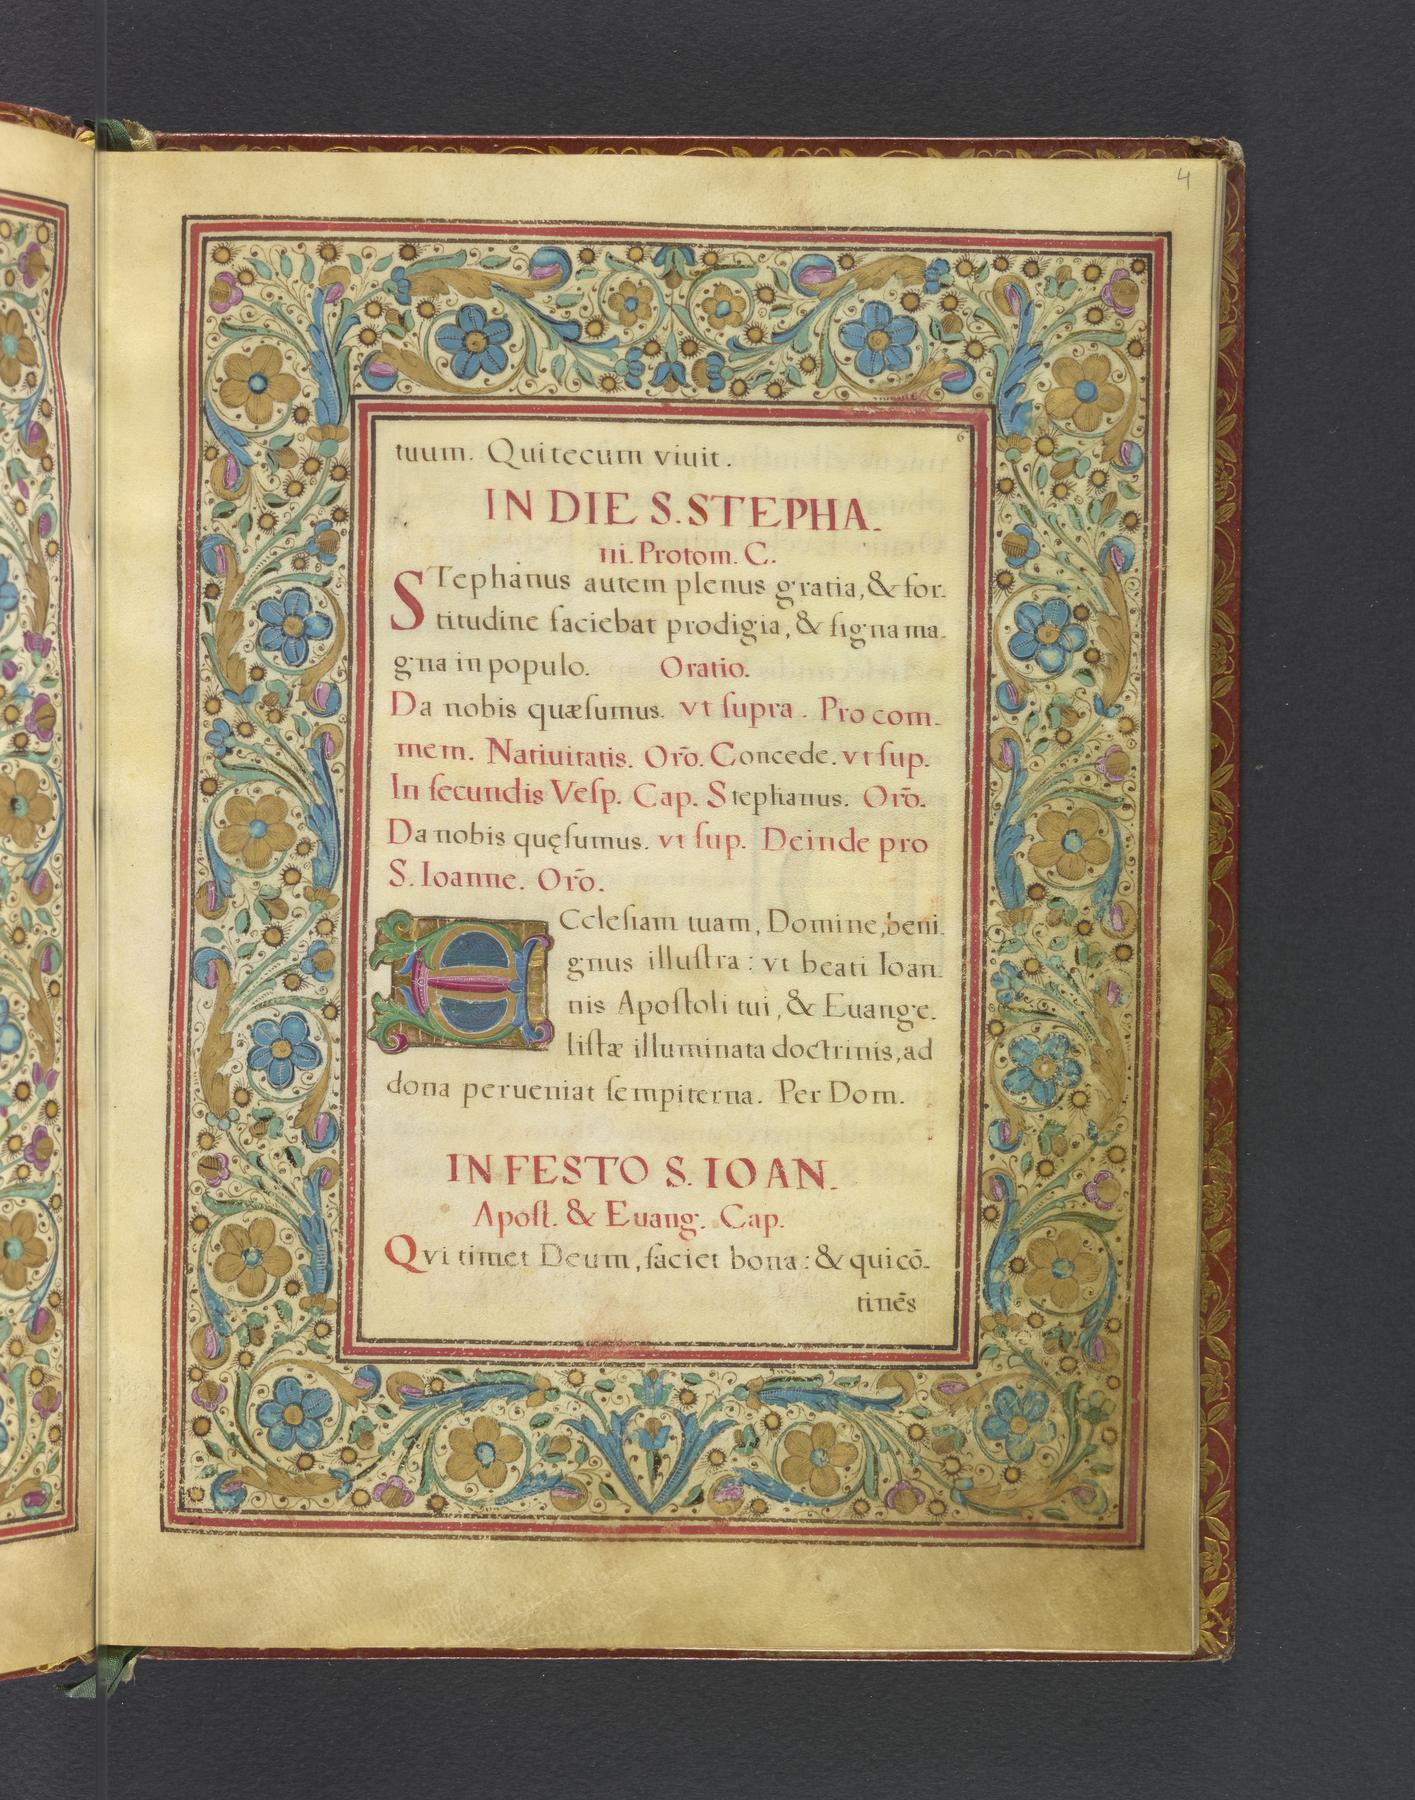 4
6
tuum. Qui tecum viuit.
IN DIE S. STEPHA-
ni. Protom. C.
STephanus autem plenus gratia, & for-
titudine faciebat prodigia, & ſigna ma-
gna in populo. Oratio.
Da nobis quæſumus. vt ſupra. Pro com-
mem. Natiuitatis. Orō. Concede. vt ſup.
In ſecundis Veſp. Cap. Stephanus. Orō.
Da nobis quęſumus. vt ſup. Deinde pro
S. Ioanne. Orō.
ECcleſiam tuam, Domine, beni-
gnus illuſtra: vt beati Ioan-
nis Apoſtoli tui, & Euange-
liſtæ illuminata doctrinis, ad
dona perueniat ſempiterna. Per Dom.
IN FESTO S. IOAN.
Apoſt. & Euang. Cap.
QVi timet Deum, faciet bona: & qui cō-
tinēs